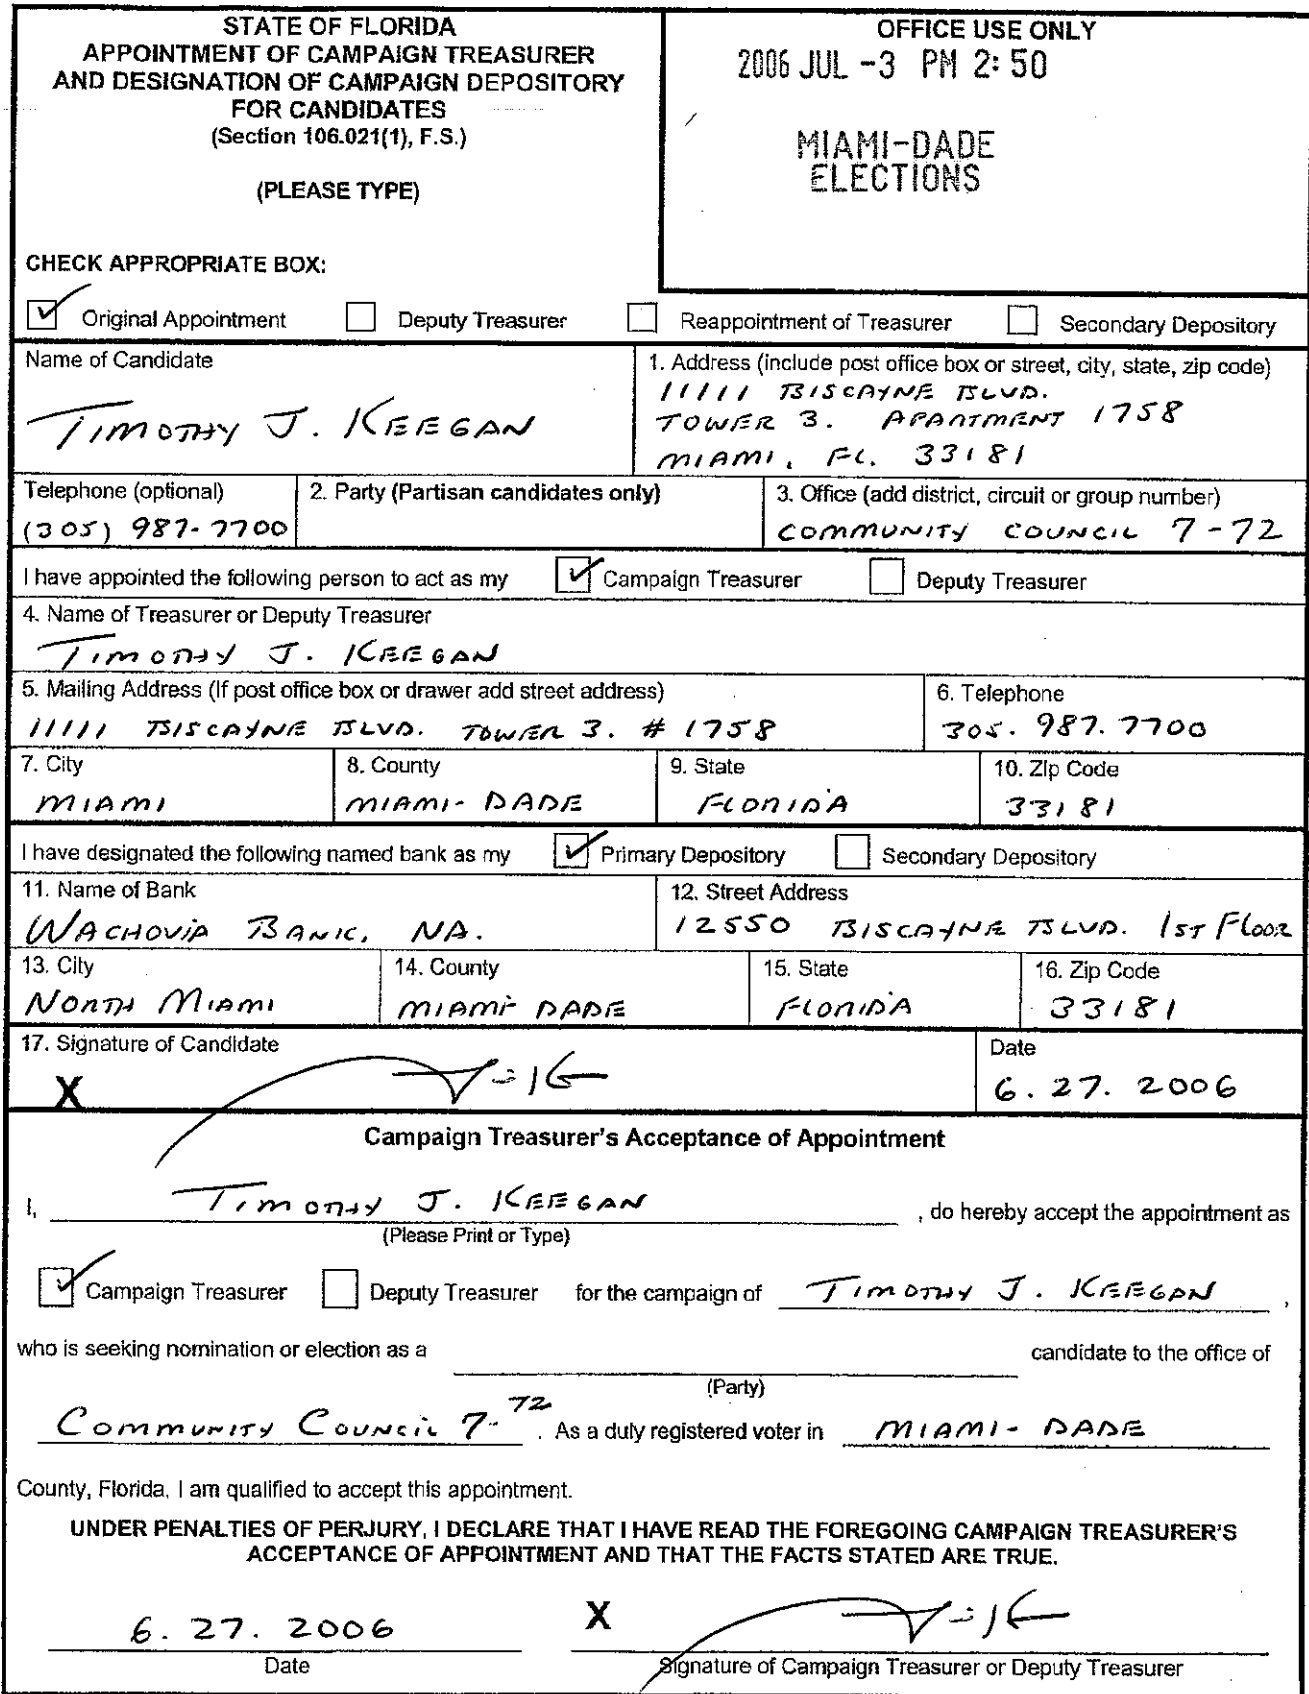 STATE OF FLORIDA
APPOINTMENT OF CAMPAIGN TREASURER
AND DESIGNATION OF CAMPAIGN DEPOSITORY
FOR CANDIDATES
(Section 106.021(1), F.S.)
(PLEASE TYPE)
OFFICE USE ONLY
2006 JUL -3 PM 2:50
MIAMI-DADE
ELECTIONS
CHECK APPROPRIATE BOX:
Original Appointment Deputy Treasurer Reappointment of Treasurer Secondary Depository
Name of Candidate
TIMOTHY J. KEEGAN
1. Address (include post office box or street, city, state, zip code)
11111 BISCAYNE BLVD.
TOWER 3. APARTMENT 1758
MIAMI, FL. 33181
Telephone (optional)
(305) 987-7700
2. Party (Partisan candidates only)
3. Office (add district, circuit or group number)
COMMUNITY COUNCIL 7-72
I have appointed the following person to act as my Campaign Treasurer Deputy Treasurer
4. Name of Treasurer or Deputy Treasurer
TIMOTHY J. KEEGAN
5. Mailing Address (If post office box or drawer add street address)
11111 BISCAYNE BLVD. TOWER 3. # 1758
6. Telephone
305. 987. 7700
7. City
MIAMI
8. County
MIAMI-DADE
9. State
FLORIDA
10. Zip Code
33181
I have designated the following named bank as my Primary Depository Secondary Depository
11. Name of Bank
WACHOVIA BANK, NA.
12. Street Address
12550 BISCAYNE BLVD. 1ST FLOOR
13. City
NORTH MIAMI
14. County
MIAMI-DADE
15. State
FLORIDA
16. Zip Code
33181
17. Signature of Candidate
X
Date
6. 27. 2006
Campaign Treasurer's Acceptance of Appointment
I, TIMOTHY J. KEEGAN , do hereby accept the appointment as
(Please Print or Type)
Campaign Treasurer Deputy Treasurer for the campaign of TIMOTHY J. KEEGAN ,
who is seeking nomination or election as a candidate to the office of
(Party)
COMMUNITY COUNCIL 7-72 . As a duly registered voter in MIAMI-DADE
County, Florida, I am qualified to accept this appointment.
UNDER PENALTIES OF PERJURY, I DECLARE THAT I HAVE READ THE FOREGOING CAMPAIGN TREASURER'S
ACCEPTANCE OF APPOINTMENT AND THAT THE FACTS STATED ARE TRUE.
6. 27. 2006 X
Date Signature of Campaign Treasurer or Deputy Treasurer